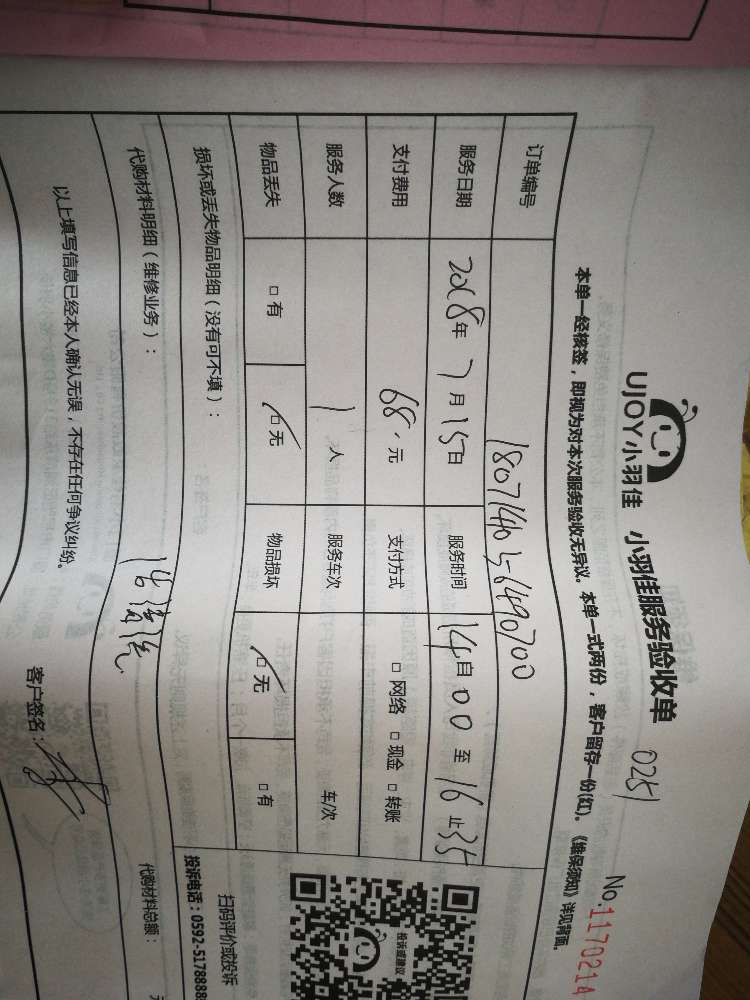 UJOY小羽佳 小羽佳服务验收单 0251
No.1170214
本单一经核签,即视为对本次服务验收无异议。本单一式两份,客户留存一份(红)。《维保须知》详见背面。
订单编号
服务日期 2018年7月15日 服务时间 14自00至16止35
支付费用 68.元 支付方式 □网络 □现金 □转账
服务人数 1人 服务车次 车/次
物品丢失 □有 □无 物品损坏 □无 □有
损坏或丢失物品明细(没有可不填):
代购材料明细(维修业务): 代购材料总额:
以上填写信息已经本人确认无误,不存在任何争议纠纷。
客户签名:
投诉或建议
扫码评价或投诉
投诉电话:0592-5178888